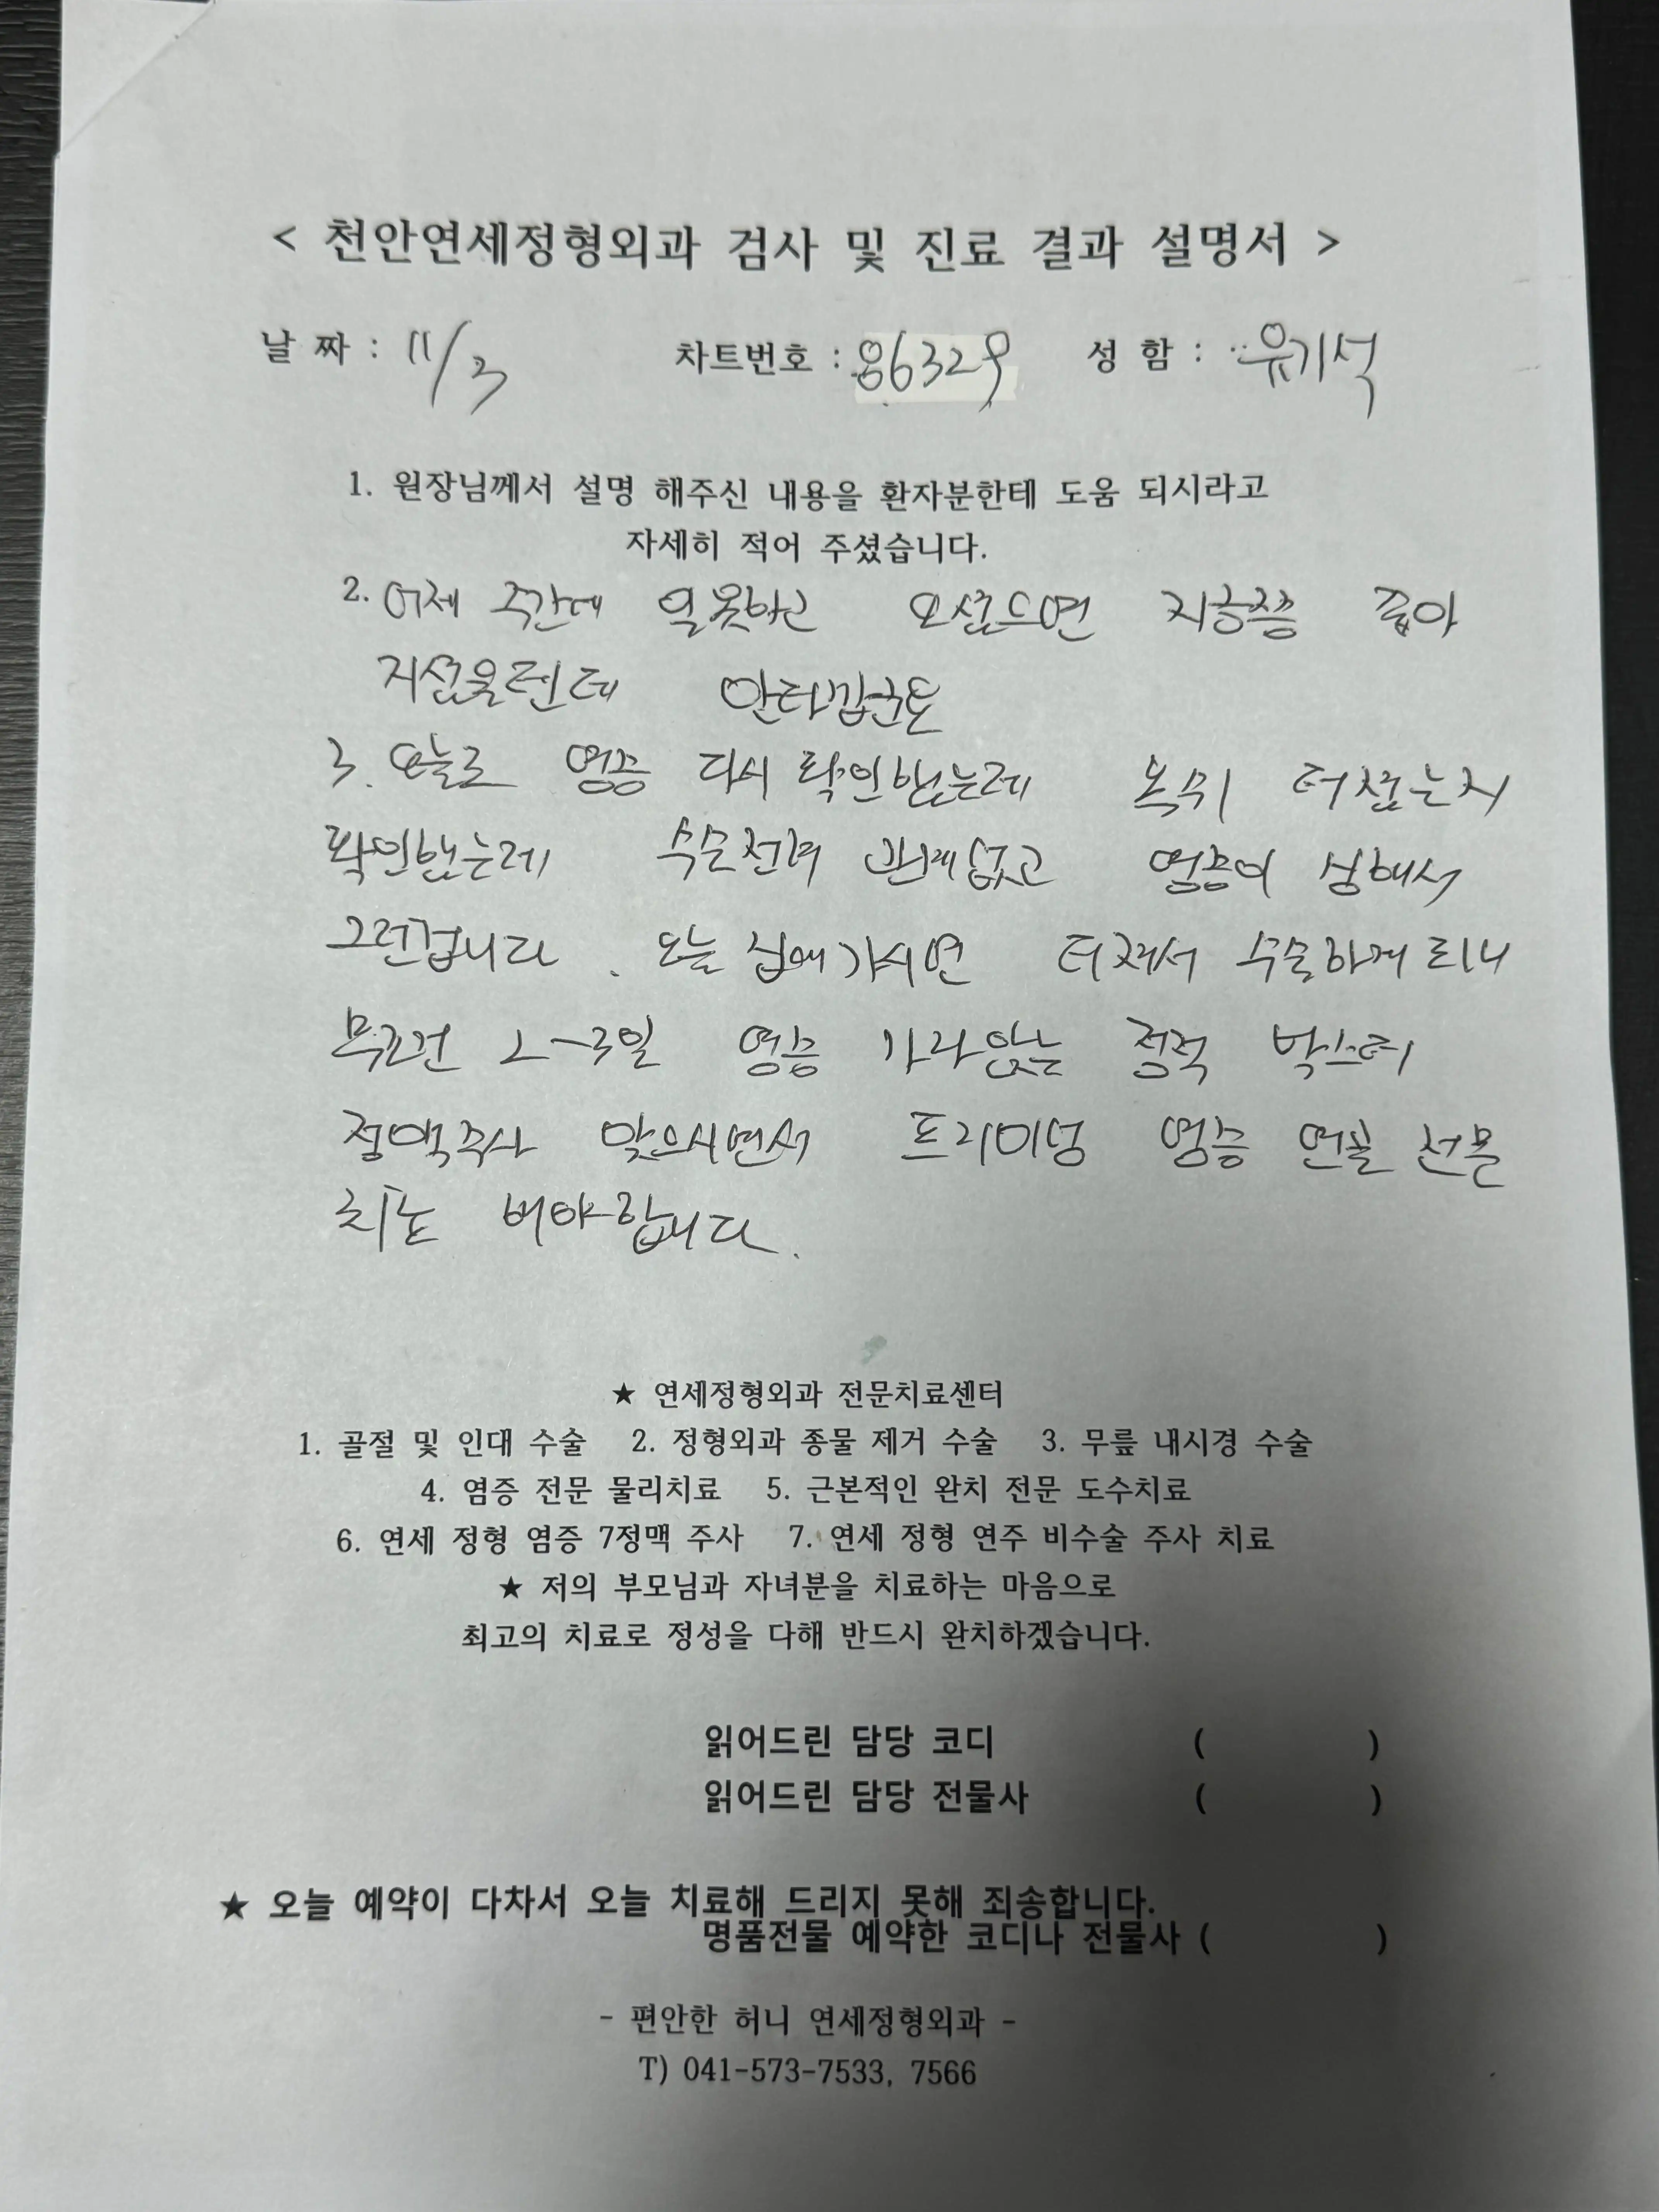 < 천안연세정형외과 검사 및 진료 결과 설명서 >
날 짜 : 11/3 차트번호 : 86329 성 함 : 유기석
1. 원장님께서 설명 해주신 내용을 환자분한테 도움 되시라고
자세히 적어 주셨습니다.
2. 어제 주간에 일못하고 오셨으면 지금쯤 좋아
지셨을텐데 안타깝군요
3. 오늘도 염증 다시 확인했는데 터졌는지
확인했는데 수술전혀 관계없고 염증이 심해서
그런겁니다. 오늘 집에가시면 터져서 수술하게 되니
무조건 2-3일 염증 가라앉는 박스터
정맥주사 맞으시면서 프리미엄 염증 연골 전문
치료 받아야합니다.
★ 연세정형외과 전문치료센터
1. 골절 및 인대 수술 2. 정형외과 종물 제거 수술 3. 무릎 내시경 수술
4. 염증 전문 물리치료 5. 근본적인 완치 전문 도수치료
6. 연세 정형 염증 7정맥 주사 7. 연세 정형 연주 비수술 주사 치료
★ 저의 부모님과 자녀분을 치료하는 마음으로
최고의 치료로 정성을 다해 반드시 완치하겠습니다.
읽어드린 담당 코디 ( )
읽어드린 담당 전물사 ( )
★ 오늘 예약이 다차서 오늘 치료해 드리지 못해 죄송합니다.
명품전물 예약한 코디나 전물사 ( )
- 편안한 허니 연세정형외과 -
T) 041-573-7533, 7566